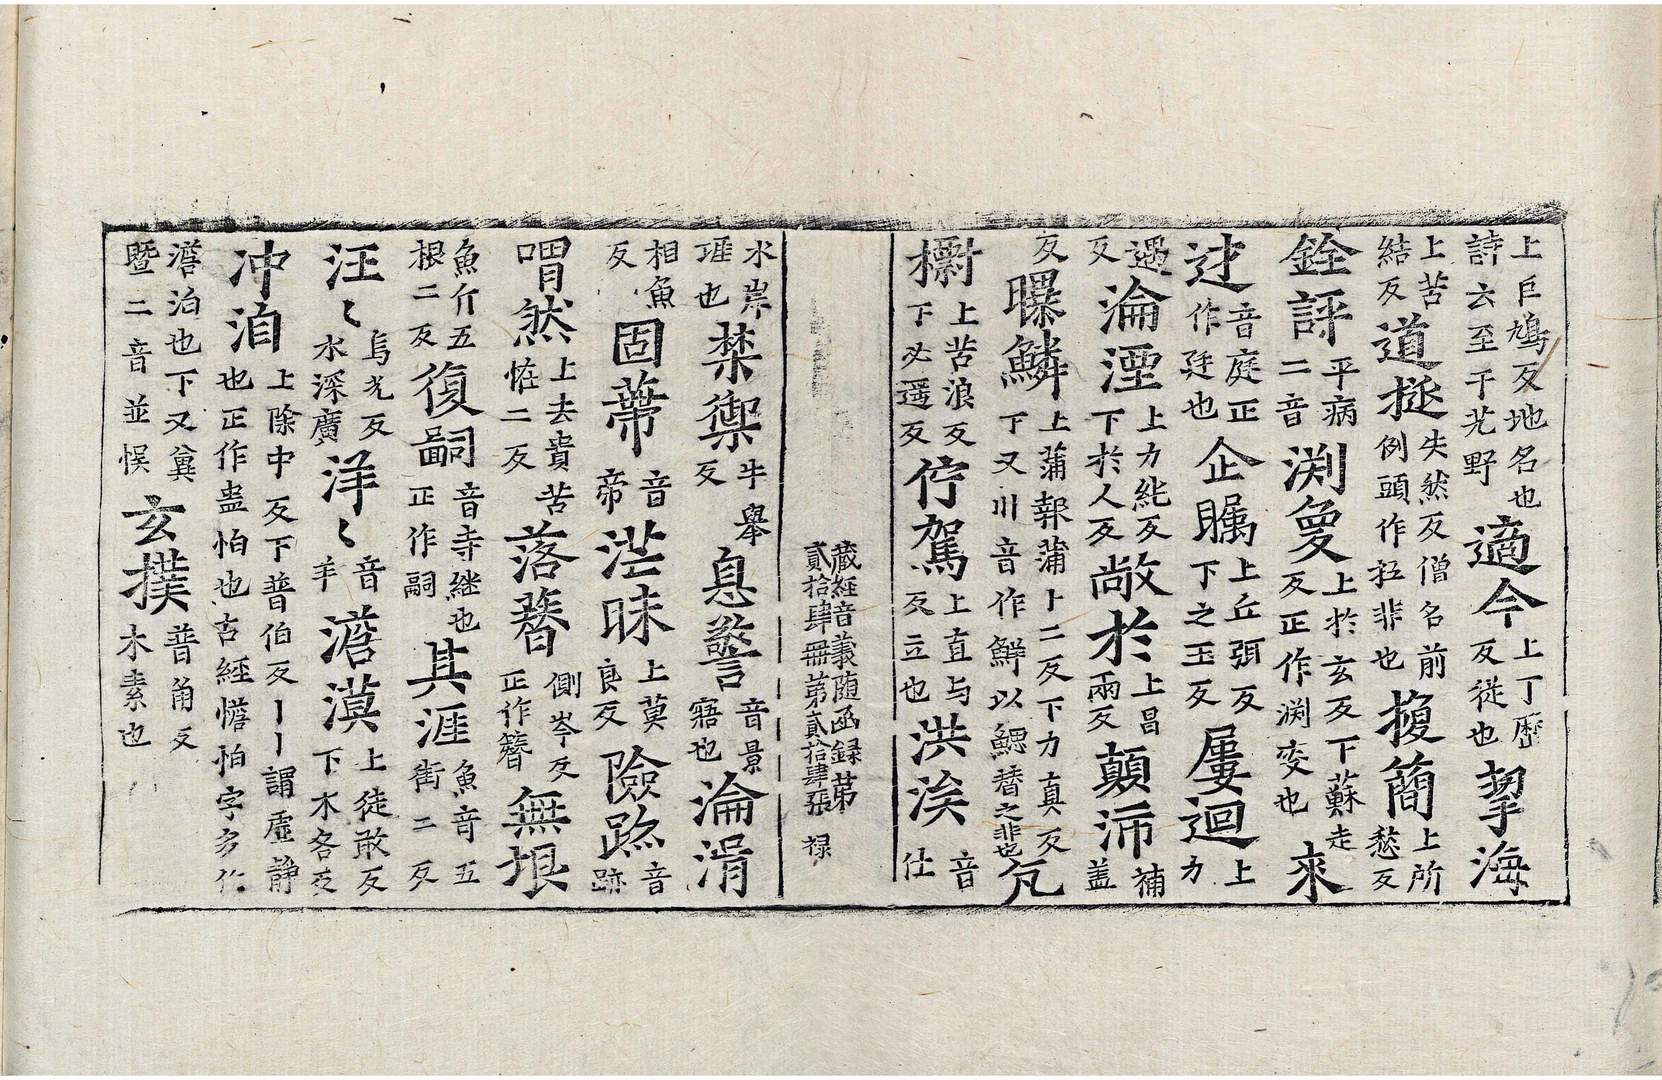 上巨鳩反地名也詩云至于艽野適今上丁歷反從也挐海
上苦結反道挻失然反僧名前例頭作㧈非也㨱簡上所愁反
銓評平病二音渕敻上於玄反下蘇走反正作渊变也來
迏音庭正作廷也企矚上丘弭反下之玉反屢迴上力
遇反淪湮上力𭮀反下於人反敞於上昌兩反顛沛補蓋
反曝鱗上蒲報蒲卜二反下力真反丁又川音作鮮以鰓替之非也凥
㯫上苦浪反下必遥反佇駕上直与反立也洪涘音仕
藏經音義随函錄第貳拾肆冊第貳拾肆張 禄
水岸涯也禁禦牛舉反息警音景寤也淪湑
相魚反固蔕音帝茫昧上莫良反險跡音跡
喟然上去貴苦恠二反落簪側岑反正作簪無垠
魚斤五根二反復嗣音寺継也正作嗣其涯魚音五街二反
汪〻烏光反水深廣洋〻音羊澹漠上徒敢反下木各反
冲洎上除中反下普伯反丨丨謂虛静也正作盅怕也古經憺怕字多作
澹泊也下又兾暨二音並悮玄撲普角反木素也